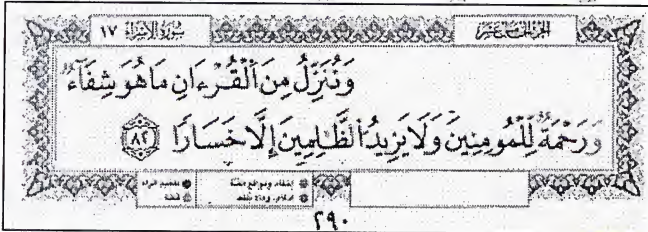 الجزء الخامس عشر
سورة الإسراء ١٧
وَنُنَزِّلُ مِنَ ٱلْقُرْءَانِ مَا هُوَ شِفَآءٌ
وَرَحْمَةٌ لِّلْمُومِنِينَ وَلَا يَزِيدُ ٱلظَّٰلِمِينَ إِلَّا خَسَارًا ٨٢
تفخيم الراء
قلقلة
٢٩٠